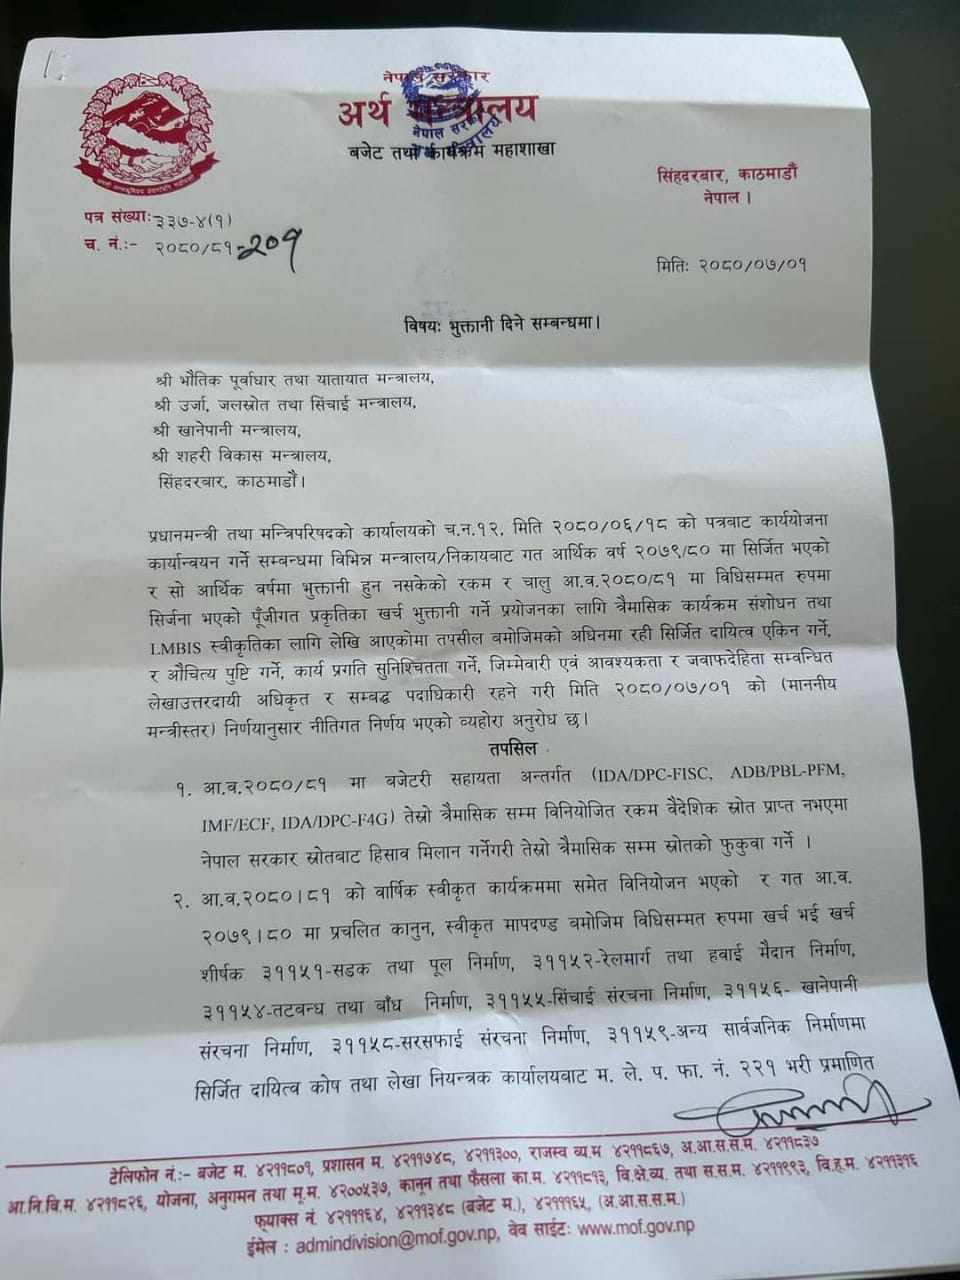 नेपाल सरकार
अर्थ मन्त्रालय
नेपाल सरकार
बजेट तथा कार्यक्रम महाशाखा
सिंहदरबार, काठमाडौं
नेपाल ।
पत्र संख्याः ३३७-४(१)
च. नं.:- २०८०/८१-२०१
मितिः २०८०/०७/०१
विषयः भुक्तानी दिने सम्बन्धमा।
श्री भौतिक पूर्वाधार तथा यातायात मन्त्रालय,
श्री उर्जा, जलस्रोत तथा सिंचाई मन्त्रालय,
श्री खानेपानी मन्त्रालय,
श्री शहरी विकास मन्त्रालय,
सिंहदरवार, काठमाडौं।
प्रधानमन्त्री तथा मन्त्रिपरिषदको कार्यालयको च.न.१२, मिति २०८०/०६/१८ को पत्रबाट कार्ययोजना
कार्यान्वयन गर्ने सम्बन्धमा विभिन्न मन्त्रालय/निकायवाट गत आर्थिक वर्ष २०७९/८० मा सिर्जित भएको
र सो आर्थिक वर्षमा भुक्तानी हुन नसकेको रकम र चालु आ.व.२०८०/८१ मा विधिसम्मत रुपमा
सिर्जना भएको पूँजीगत प्रकृतिका खर्च भुक्तानी गर्ने प्रयोजनका लागि त्रैमासिक कार्यक्रम संशोधन तथा
LMBIS स्वीकृतिका लागि लेखि आएकोमा तपसील बमोजिमको अधिनमा रही सिर्जित दायित्व एकिन गर्ने,
र औचित्य पुष्टि गर्ने, कार्य प्रगति सुनिश्चितता गर्ने, जिम्मेवारी एवं आवश्यकता र जवाफदेहिता सम्वन्धित
लेखाउत्तरदायी अधिकृत र सम्बद्ध पदाधिकारी रहने गरी मिति २०८०/०७/०१ को (माननीय
मन्त्रीस्तर) निर्णयानुसार नीतिगत निर्णय भएको व्यहोरा अनुरोध छ।
तपसिल
१. आ.व.२०८०/८१ मा बजेटरी सहायता अन्तर्गत (IDA/DPC-FISC, ADB/PBL-PFM,
IMF/ECF, IDA/DPC-F4G) तेस्रो त्रैमासिक सम्म विनियोजित रकम वैदेशिक स्रोत प्राप्त नभएमा
नेपाल सरकार स्रोतबाट हिसाव मिलान गर्नेगरी तेस्रो त्रैमासिक सम्म स्रोतको फुकुवा गर्ने ।
२. आ.व.२०८०।८१ को वार्षिक स्वीकृत कार्यक्रममा समेत विनियोजन भएको र गत आ.व.
२०७९।८० मा प्रचलित कानुन, स्वीकृत मापदण्ड बमोजिम विधिसम्मत रुपमा खर्च भई खर्च
शीर्षक ३११५१-सडक तथा पूल निर्माण, ३११५२-रेलमार्ग तथा हवाई मैदान निर्माण,
३११५४-तटबन्ध तथा बाँध निर्माण, ३११५५-सिंचाई संरचना निर्माण, ३११५६- खानेपानी
संरचना निर्माण, ३११५८-सरसफाई संरचना निर्माण, ३११५९-अन्य सार्वजनिक निर्माणमा
सिर्जित दायित्व कोष तथा लेखा नियन्त्रक कार्यालयबाट म. ले. प. फा. नं. २२१ भरी प्रमाणित
टेलिफोन नं.:- बजेट म. ४२११८०१, प्रशासन म. ४२११७४८, ४२११३००, राजस्व व्य.म ४२११८६७, अ.आ.स.स.म. ४२११८३७
आ.नि.वि.म. ४२११८२६, योजना, अनुगमन तथा मू.म. ४२००५३७, कानून तथा फैसला का.म. ४२११८१३, वि.क्षे.व्य. तथा स.स.म. ४२११९९३, वि.ह.म. ४२११३१६
फ्याक्स नं. ४२१११६४, ४२११३४८ (बजेट म.), ४२१११६५, (अ.आ.स.स.म.)
ईमेल : admindivision@mof.gov.np, वेव साईटः www.mof.gov.np